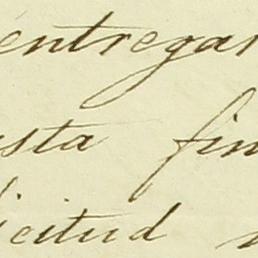 entregar
sta fin
licitud